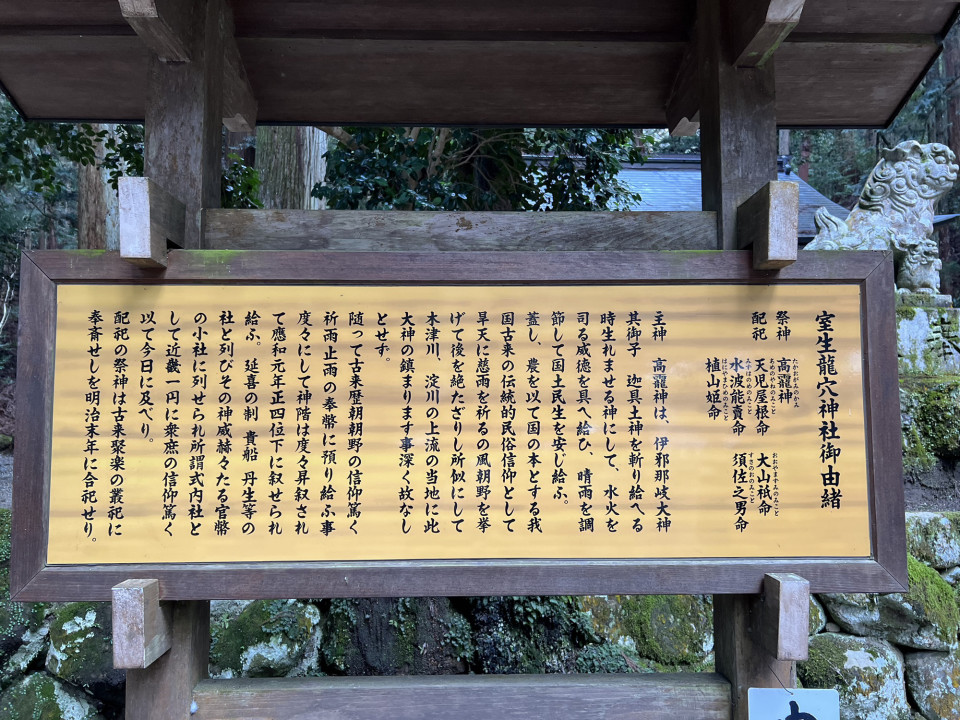 室生龍穴神社御由緒
祭神 高龗神
たかおがみかみ
配祀 天児屋根命 大山祇命
あめのやねのみこと おおやますみのみこと
水波能賣命 須佐之男命
みずはのめのみこと すさのおのみこと
植山姫命
はにやまひめのみこと
主神 高龗神は、伊邪那岐大神
其御子 迦具土神を斬り給へる
時生れませる神にして、水火を
司る威徳を具へ給ひ、晴雨を調
節して国土民生を安じ給ふ。
蓋し、農を以て国の本とする我
国古来の伝統的民俗信仰として
旱天に慈雨を祈るの風朝野を挙
げて後を絶たざりし所似にして
木津川、淀川の上流の当地に此
大神の鎮まります事深く故なし
とせず。
随って古来歴朝朝野の信仰篤く
祈雨止雨の奉幣に預り給ふ事
度々にして神階は度々昇叙され
て應和元年正四位下に叙せられ
給ふ。延喜の制 貴船 丹生等の
社と列びその神威赫々たる官幣
の小社に列せられ所謂式内社と
して近畿一円に衆庶の信仰篤く
以て今日に及べり。
配祀の祭神は古来聚楽の叢祀に
奉斎せしを明治末年に合祀せり。